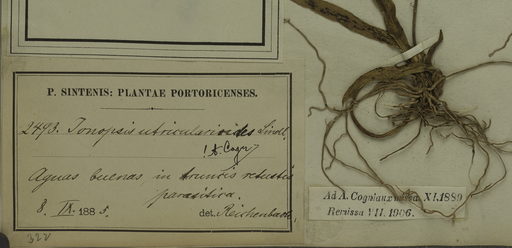 P. SINTENIS: PLANTAE PORTORICENSES.
2493. Ionopsis utricularioides Lindl.
! A. Cogn
Aguas buenas, in truncis vetustis
parasitica.
8. IX. 1885. det. Reichenbach.
322
Ad A. Cogniaux missa XI.1889
Remissa VII. 1906.